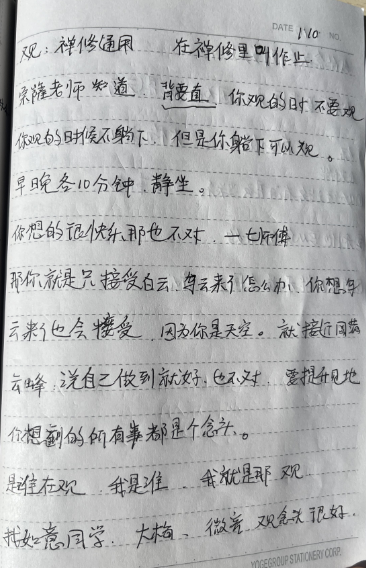 DATE 1/10 NO.
观：禅修通用 在禅修里叫作止
宗萨老师知道 背要直 你观的时 不要观
你观的时候不躺下 但是你躺下可以观。
早晚各10分钟 静坐。
你想的很快乐那也不对 一七师傅
那你就是只接受白云 乌云来了怎么办、你想乌
云来了也会接受 因为你是天空。就接近
说自己做到就好，也不对 要提升见地
你想到的所有事都是个念头。
是谁在观 我是谁 我就是那观
找如意同学、大梅、微 观念头很好.
YOGEGROUP STATIONERY CORP.